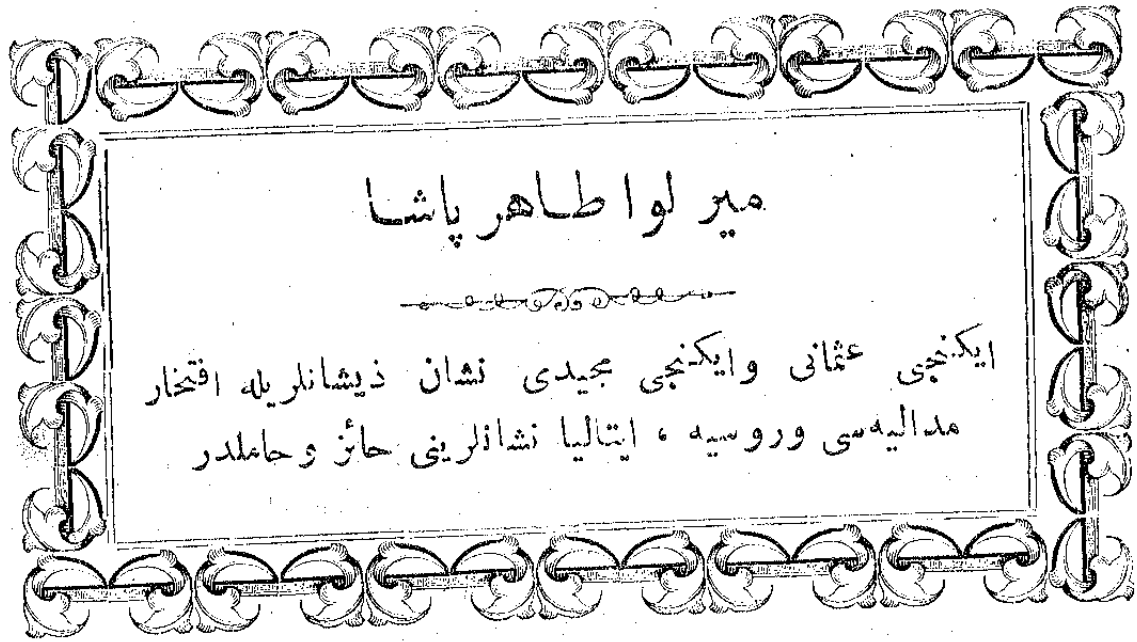 میر لوا طاهر پاشا
ایکنجی عثمانی وایکنجی مجیدی نشان ذیشانلریله افتخار
مدالیه‌سی وروسیه ، ایتالیا نشانلرینی حائز و حاملدر